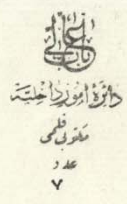 باب عالی
دائرهٔ امور داخلیه
مکتوبی قلمی
عدد
٧